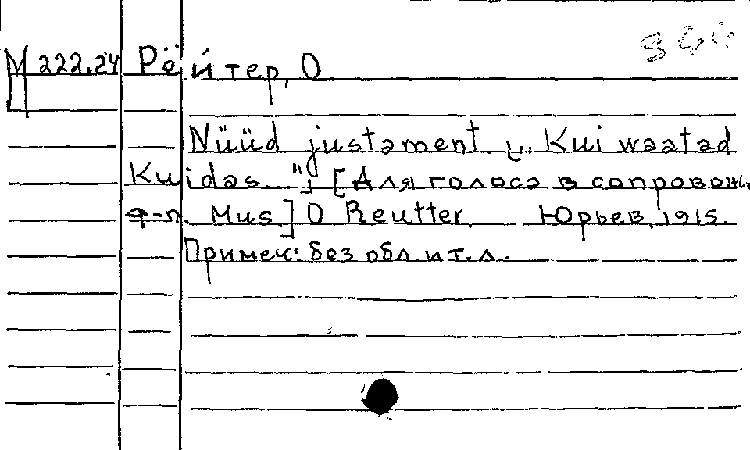 M 222.24 Рёйтер, О
Nüüd justament („Kui waatad
Kuidas...") [Для голоса в сопровож.
ф-п. Mus] O Reutter. Юрьев, 1915.
Примеч: без обл. и т.л.